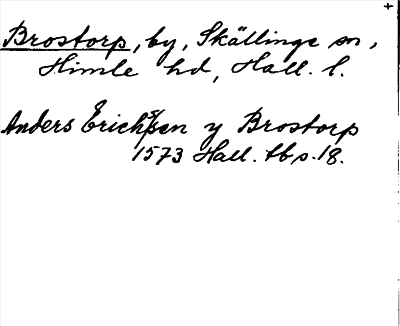 Brostorp, by, Skällinge sn,
Himle hd, Hall. l.
Anders Erichssen y Brostorp
1573 Hall. tb s. 18.